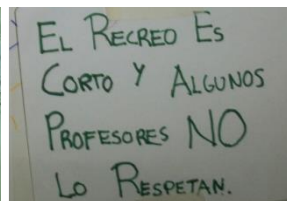 El Recreo Es
Corto y Algunos
Profesores NO
Lo Respetan.